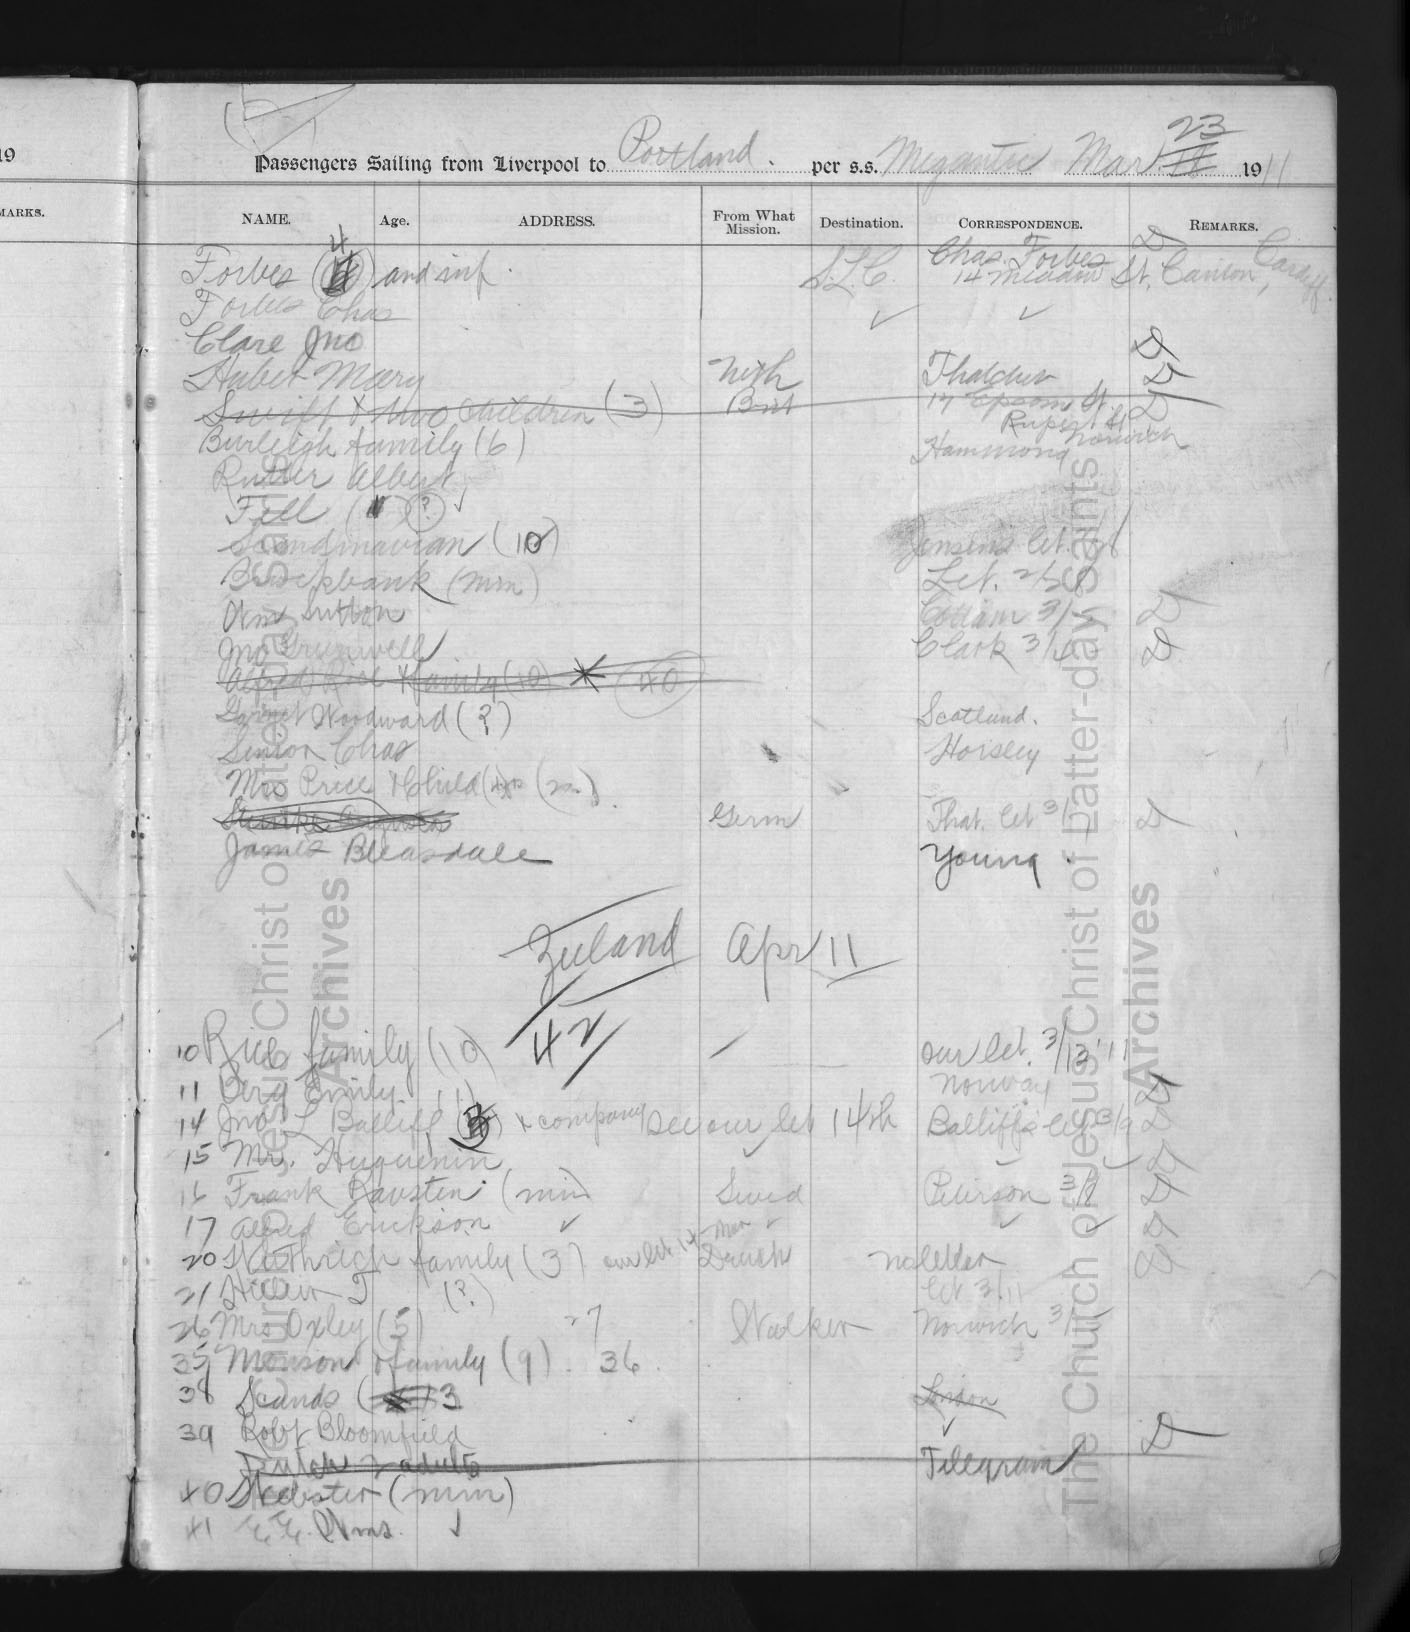 19
MARKS.
23
Passengers Sailing from Liverpool to Portland. per s.s. Megantic Mar 1911
NAME. Age. ADDRESS. From What Mission. Destination. CORRESPONDENCE. REMARKS.
4
Forbes and inf. S.L.C. Chas. Forbes D
14 Meadow St. Canton, Cardiff.
Forbes Chas ✓ ✓
Clare Jno D
Huber Mary Neth Thatcher D
Swift & two Children (3) Brit 17 Epsom St D
Rupert St
Burleigh family (6) Hammond Norwich
Rutter Albert ✓
Fell (?)
Scandinavian (10) Jensens let.
Brockbank (mm) Let. 2/28
Wm Sutton Cottam 3/ D
Jno Clark 3/ D
Alfred Rice & family (10) (40)
Woodward (?) Scotland.
Senior Chas Horsley
Mrs Price & Child
Germ That. let 3/ D
James Bleasdale Young.
Zeeland Apr 11
42
10 Rice family (10) our let. 3/13 '11
11 Berg Emily. Norway D
14 Jno L Balliff & company See our let 14th Balliff's let 3/9 D
15 Mr. Huguenin ✓ ✓ ✓ D
16 Frank Rausten (min) Swed Peterson 3/ D
17 Alfred Erickson ✓ ✓ ✓ ✓ D
20 Wuthrich family (3) our let 14 Mar no letter
21 T (?) let 3/11
26 Mrs Oxley (5) 27 Walker Norwich 3/
35 Monson & family (9). 36
38 Scands 3 London
39 Robt Bloomfield ✓ D
Dutch 2 adults Telegram
40 Webster (mm)
41 Wms. ✓
The Church of Jesus Christ of Latter-day Saints
Archives
The Church of Jesus Christ of Latter-day Saints
Archives